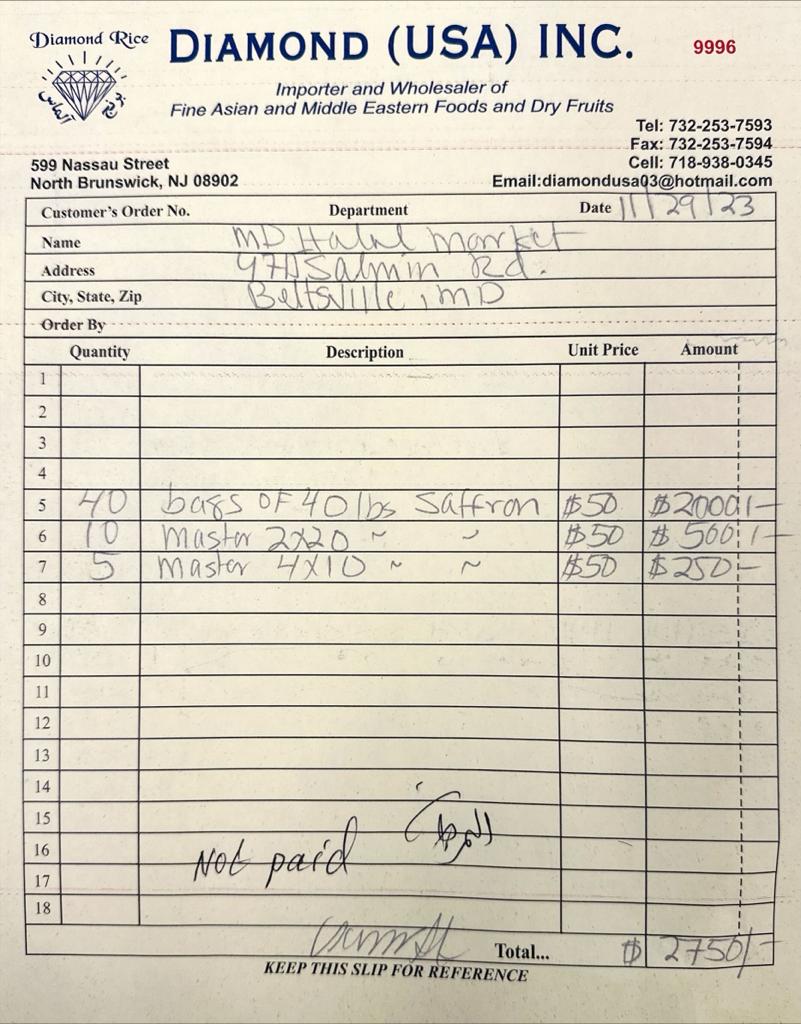 Diamond Rice
DIAMOND (USA) INC.
9996
Importer and Wholesaler of
Fine Asian and Middle Eastern Foods and Dry Fruits
Tel: 732-253-7593
Fax: 732-253-7594
599 Nassau Street Cell: 718-938-0345
North Brunswick, NJ 08902 Email:diamondusa03@hotmail.com
Customer's Order No. Department Date 11/29/23
Name MD Halal Market
Address Rd.
City, State, Zip Beltsville, MD
Order By
Quantity Description Unit Price Amount
1
2
3
4
5 40 bags OF 40 lbs Saffron $50 $2000/-
6 10 Master 2x20 ~ ~ $50 $500/-
7 5 Master 4x10 ~ ~ $50 $250-
8
9
10
11
12
13
14
15
16 Not paid
17
18
Total... $ 2750/-
KEEP THIS SLIP FOR REFERENCE